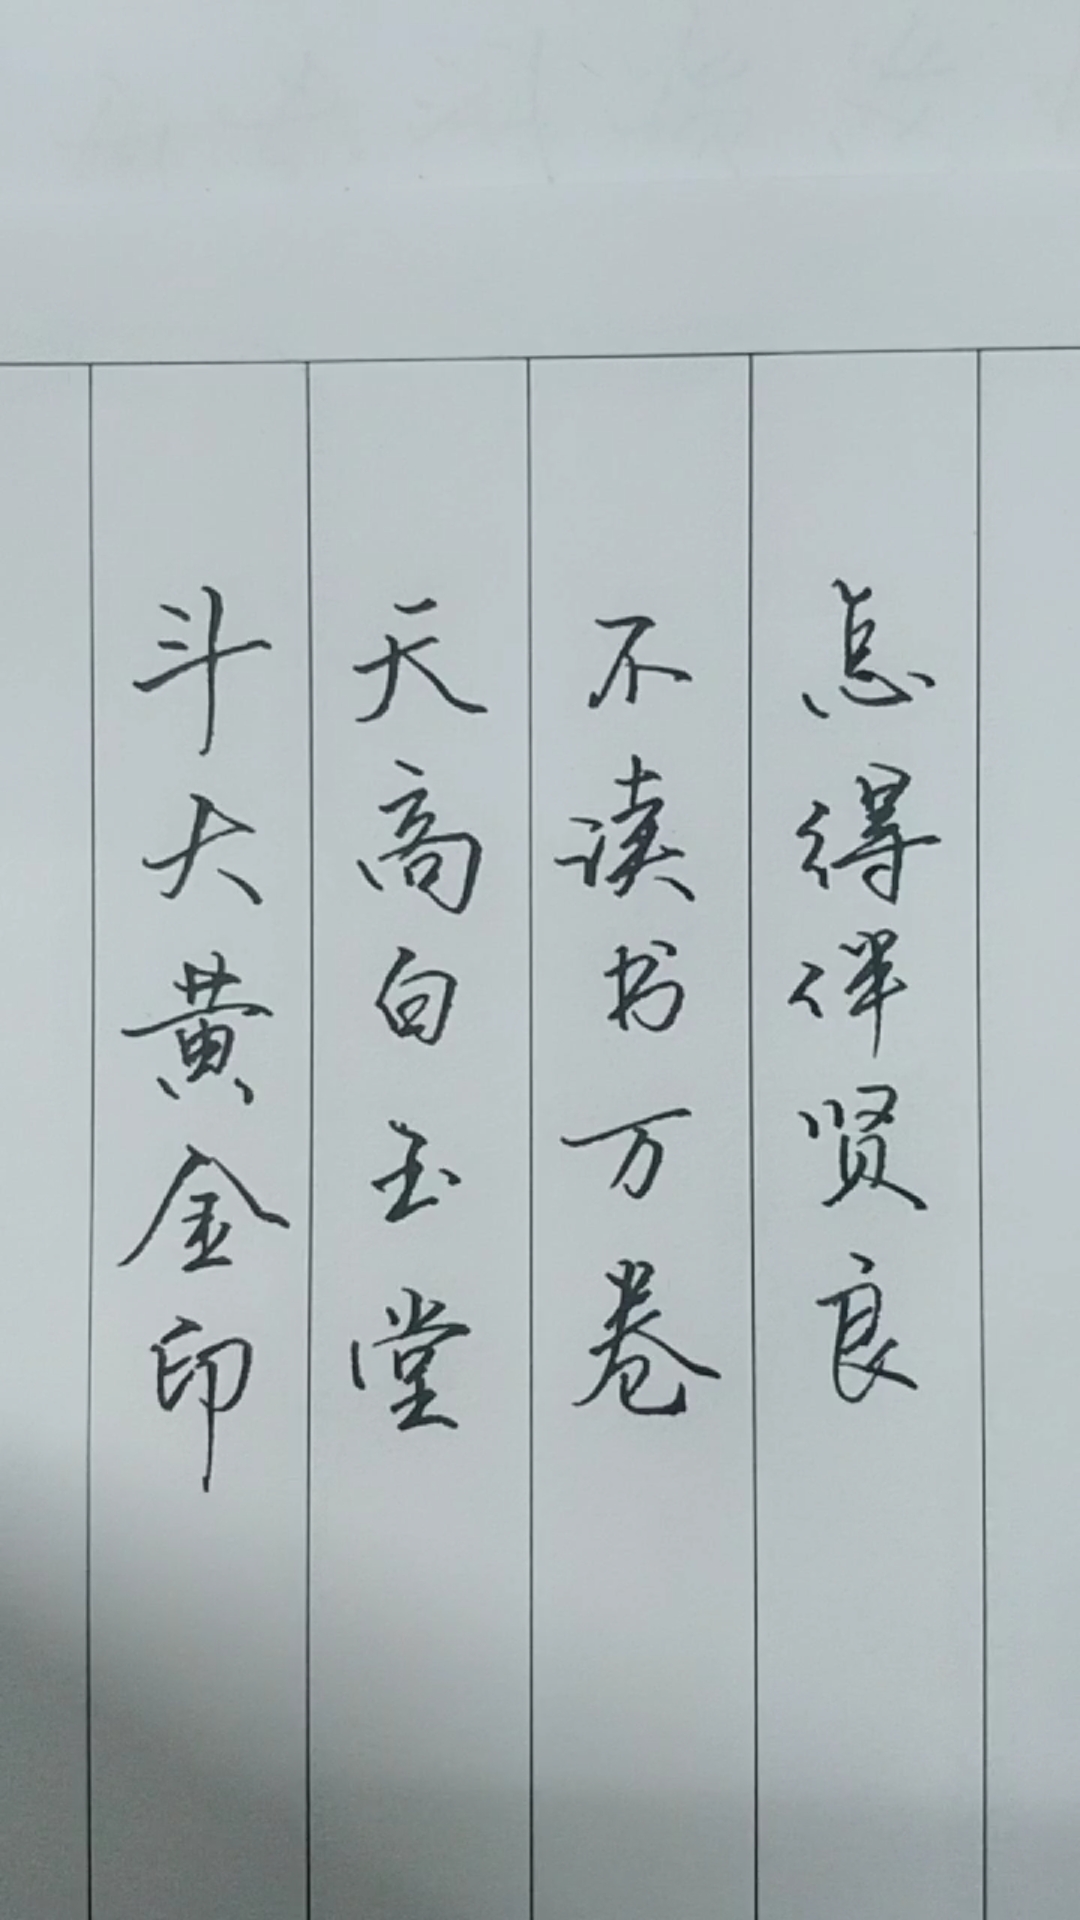 斗大黄金印
天高白玉堂
不读书万卷
怎得伴贤良